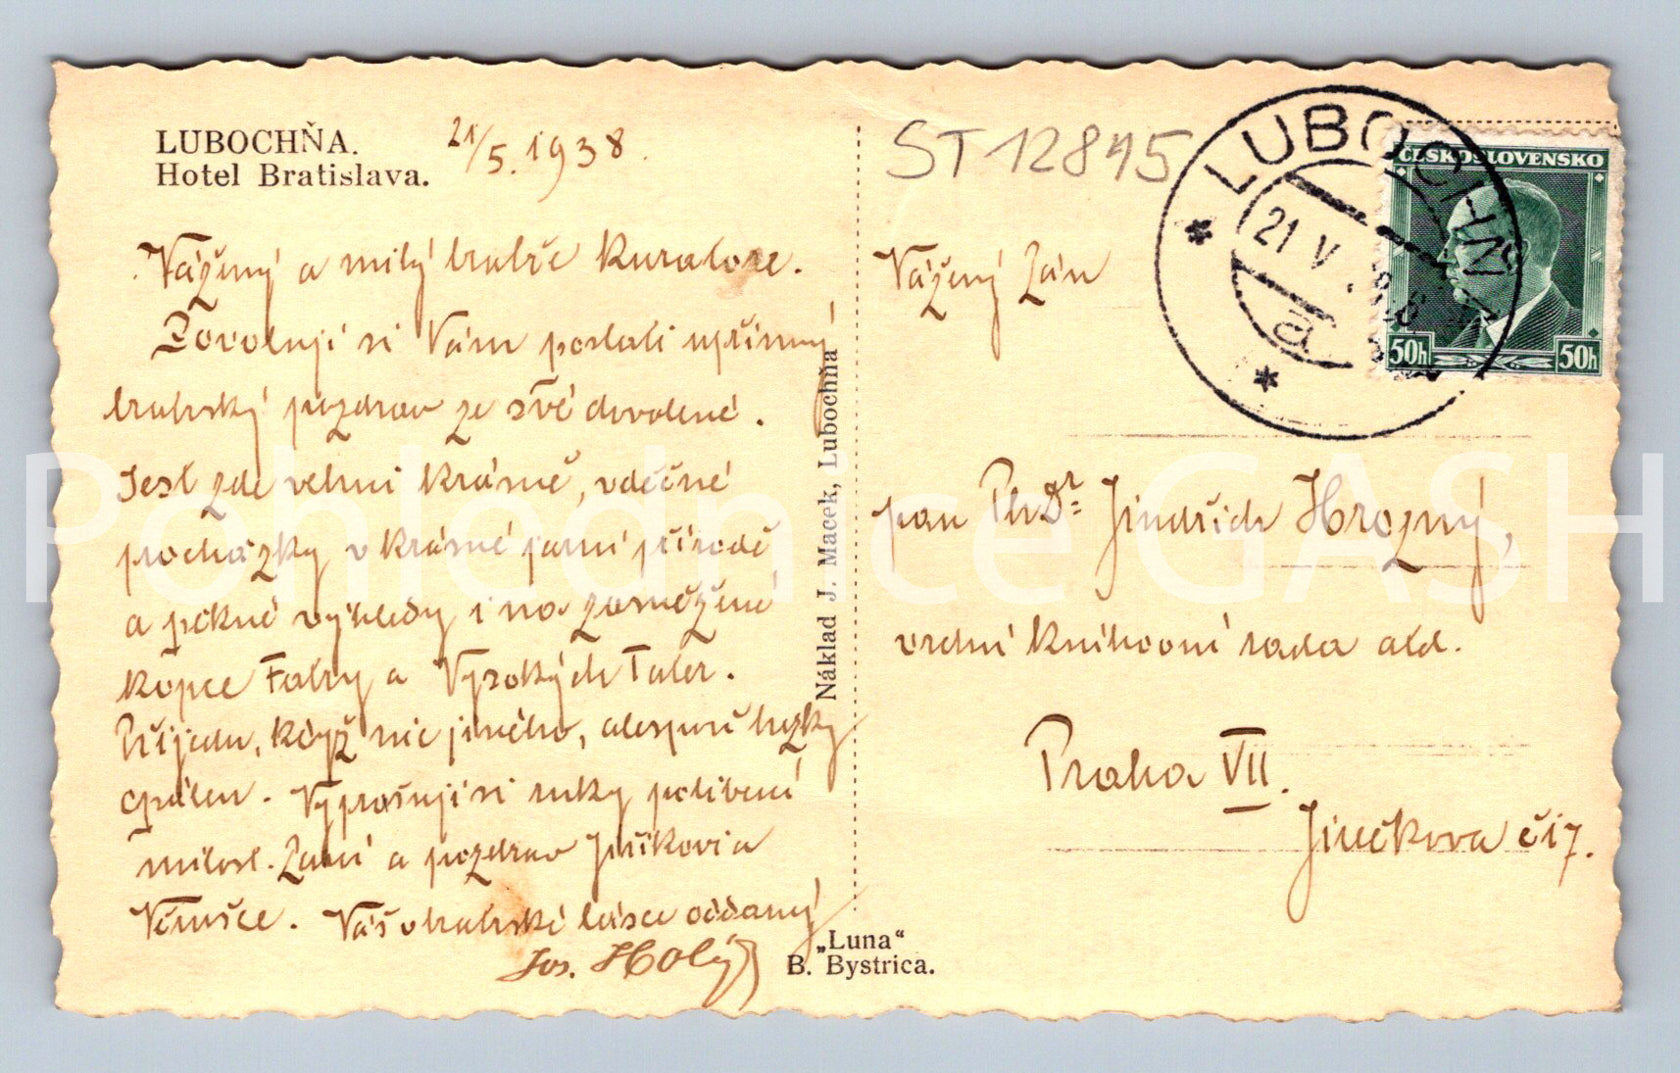 LUBOCHŇA.
Hotel Bratislava.
21/5. 1938.
Vážený a milý bratře Kuratore.
Dovoluji si Vám poslati upřímný
bratrský pozdrav ze své dovolené.
Jest zde velmi krásně, vděčné
procházky v krásné jarní přírodě,
a pěkné výhledy i na zasněžené
kopce Fatry a Vysokých Tater.
Přijedu, když nic jiného, alespoň hezky
opálen. Vyprošuji si ruky políbení
milost. Paní a pozdrav Jiříkovi a
Věrušce. Váš v bratrské lásce oddaný
Jos. Holý
Náklad J. Macek, Lubochňa
„Luna“
B. Bystrica.
ST 12845
LUBOCHŇA
21 V 38
a
ČESKOSLOVENSKO
50h 50h
Vážený Pán
pan PhDr Jindřich Hrozný,
vrchní knihovní rada atd.
Praha VII.
Jirečkova č 17.
Pohlednice GASH